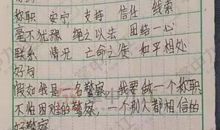 称职 安宁 支持 信任 线索
毫不犹豫 绳之以法 团结一心
联系 情况 亡命之徒 和平相处
好句
假如我是一名警察,我要做一个称职
不怕困难的警察,一个别人都相信的
好警察。